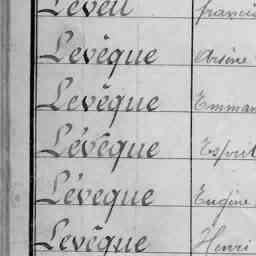 Léveil francis
Levêque Arsène
Levêque Emman
Lévêque Esprit
Léveque Eugène
Levêque Henri